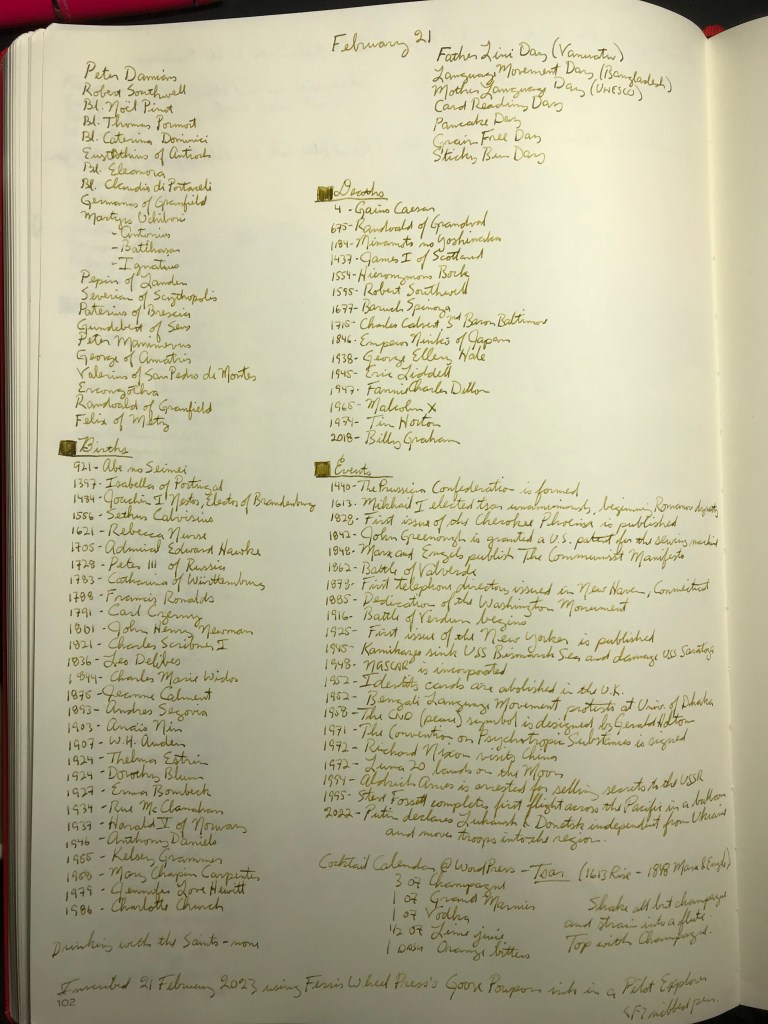 February 21
Peter Damian
Robert Southwell
Bl. Noël Pinot
Bl. Thomas Pormort
Bl. Caterina Dominici
Eustathius of Antioch
Bl. Eleonora
Bl. Claudio di Portaceli
Germanus of Granfield
Martyrs Uchibori
- Antonius
- Balthasar
- Ignatius
Pepin of Landen
Severian of Scythopolis
Paterius of Brescia
Gundebert of Sens
Peter Mavimenus
George of Amastris
Valerius of San Pedro de Montes
Ercongotha
Randoald of Granfield
Felix of Metz
Father Lini Day (Vanuatu)
Language Movement Day (Bangladesh)
Mother Language Day (UNESCO)
Card Reading Day
Pancake Day
Grain Free Day
Sticky Bun Day
Births
921 - Abe no Seimei
1397 - Isabella of Portugal
1484 - Joachim I Nestor, Elector of Brandenburg
1556 - Sethus Calvisius
1621 - Rebecca Nurse
1705 - Admiral Edward Hawke
1728 - Peter III of Russia
1783 - Catharina of Württemburg
1788 - Francis Ronalds
1791 - Carl Czerny
1801 - John Henry Newman
1821 - Charles Scribner I
1836 - Léo Delibes
1844 - Charles Marie Widor
1875 - Jeanne Calment
1893 - Andres Segovia
1903 - Anaïs Nin
1907 - W.H. Auden
1924 - Thelma Estrin
1924 - Dorothy Blum
1927 - Erma Bombeck
1934 - Rue McClanahan
1937 - Harald V of Norway
1946 - Anthony Daniels
1955 - Kelsey Grammer
1958 - Mary Chapin Carpenter
1979 - Jennifer Love Hewitt
1986 - Charlotte Church
Deaths
4 - Gaius Caesar
675 - Randoald of Grandval
1184 - Minamoto no Yoshinaka
1437 - James I of Scotland
1554 - Hieronymous Bock
1595 - Robert Southwell
1677 - Baruch Spinoza
1715 - Charles Calvert, 3rd Baron Baltimore
1846 - Emperor Ninkō of Japan
1938 - George Ellery Hale
1945 - Eric Liddell
1947 - Fannie Charles Dillon
1965 - Malcolm X
1974 - Tim Horton
2018 - Billy Graham
Events
1440 - The Prussian Confederation is formed
1613 - Mikhail I elected tsar unanimously, beginning Romanov dynasty
1828 - First issue of the Cherokee Phoenix is published
1842 - John Greenough is granted a U.S. patent for the sewing machine
1848 - Marx and Engels publish The Communist Manifesto
1862 - Battle of Valverde
1878 - First telephone directory issued in New Haven, Connecticut
1885 - Dedication of the Washington Monument
1916 - Battle of Verdun begins
1925 - First issue of the New Yorker is published
1945 - Kamikazes sink USS Bismarck Sea and damage USS Saratoga
1948 - NASCAR is incorporated
1952 - Identity cards are abolished in the U.K.
1952 - Bengali Language Movement protests at Univ. of Dhaka
1958 - The CND (peace) symbol is designed by Gerald Holtom
1971 - The Convention on Psychotropic Substances is signed
1972 - Richard Nixon visits China
1972 - Luna 20 lands on the Moon
1994 - Aldrich Ames is arrested for selling secrets to the USSR
1995 - Steve Fossett completes first flight across the Pacific in a balloon
2022 - Putin declares Luhansk & Donetsk independent from Ukraine
and moves troops into the region.
Cocktail Calendar @ WordPress - Tsar (1613 Rise - 1848 Marx & Engels)
3 oz Champagne
1 oz Grand Marnier
1 oz Vodka
1/2 oz Lime juice
1 dash Orange bitters
Shake all but champagne
and strain into a flute.
Top with Champagne.
Drinking with the Saints - none
Inscribed 21 February 2023 using Ferris Wheel Press's Goose Poupon ink in a Pilot Explorer
SF? nibbed pen.
102